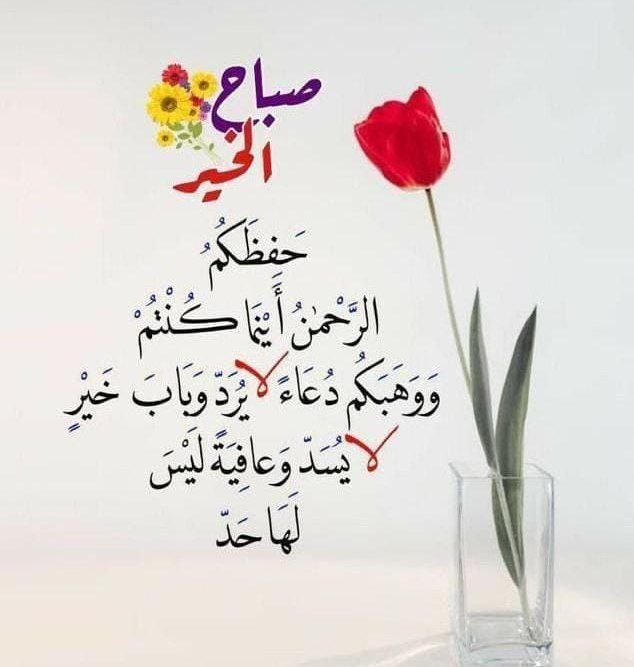 صباح
الخير
حَفِظَكُمُ
الرَّحْمٰنُ أَيْنَمَا كُنْتُمْ
وَوَهَبَكُم دُعَاءً لا يُرَدّ وَبَابَ خَيْرٍ
لا يُسَدّ وَعافِيَةً لَيْسَ
لَهَا حَدّ